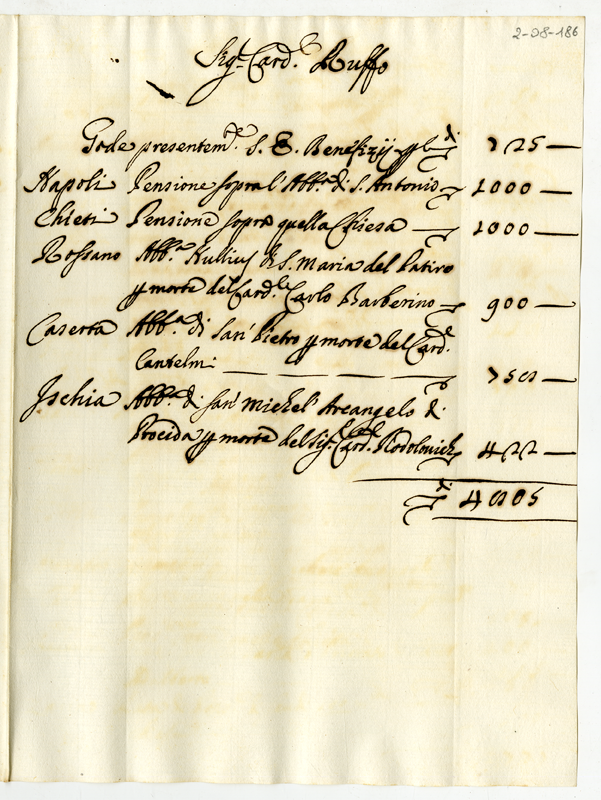 2-D8-186
Sig.r Card.e Ruffo
Gode presentem.te S. E. Benefizzij p d.i 725 —
Napoli Pensione sopra l'Abb.a di S. Antonio 1000 —
Chieti Pensione sopra quella Chiesa — 1000 —
Rossano Abb.a Nullius di S. Maria del Patiro
p morte del Card.le Carlo Barberino 900 —
Caserta Abb.a di San Pietro p morte del Card.e
Cantelmi — — — — 750 —
Ischia Abb.a di San Michel' Arcangelo di
Procida p morte del Sig.r Card.e Rodolovich 422 —
d.i 4805